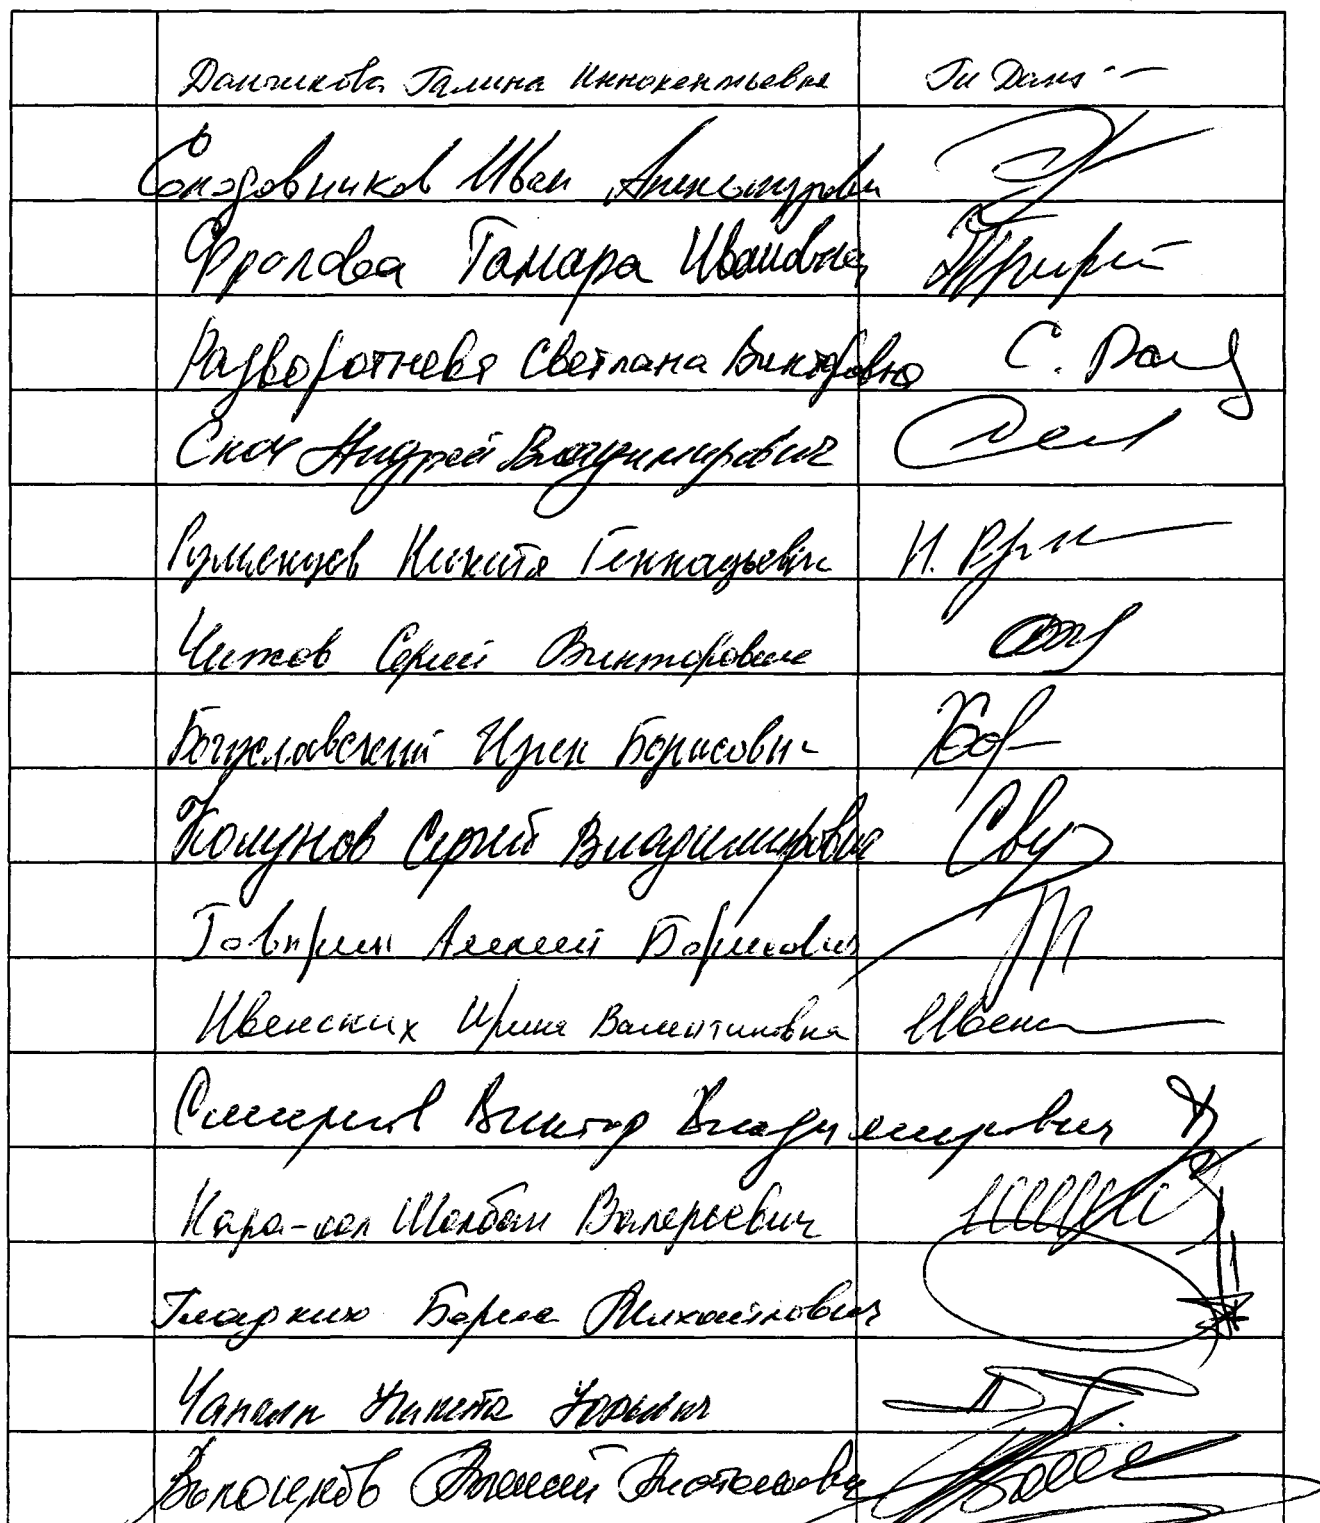 Данчикова Галина Иннокентьевна
Солодовников Иван Александрович
Фролова Тамара Ивановна
Разворотнева Светлана Викторовна С. Раз
Скоч Андрей Владимирович
Румянцев Никита Геннадьевич Н. Рум
Чижов Сергей Викторович
Богуславский Ирек Борисович
Колунов Сергей Владимирович
Говырин Алексей Борисович
Ивенских Ирина Валентиновна Ивенс
Смирнов Виктор Владимирович
Кара-оол Шолбан Валерьевич
Гладких Борис Михайлович
Чаплин Никита Юрьевич
Волоцков Алексей Анатольевич